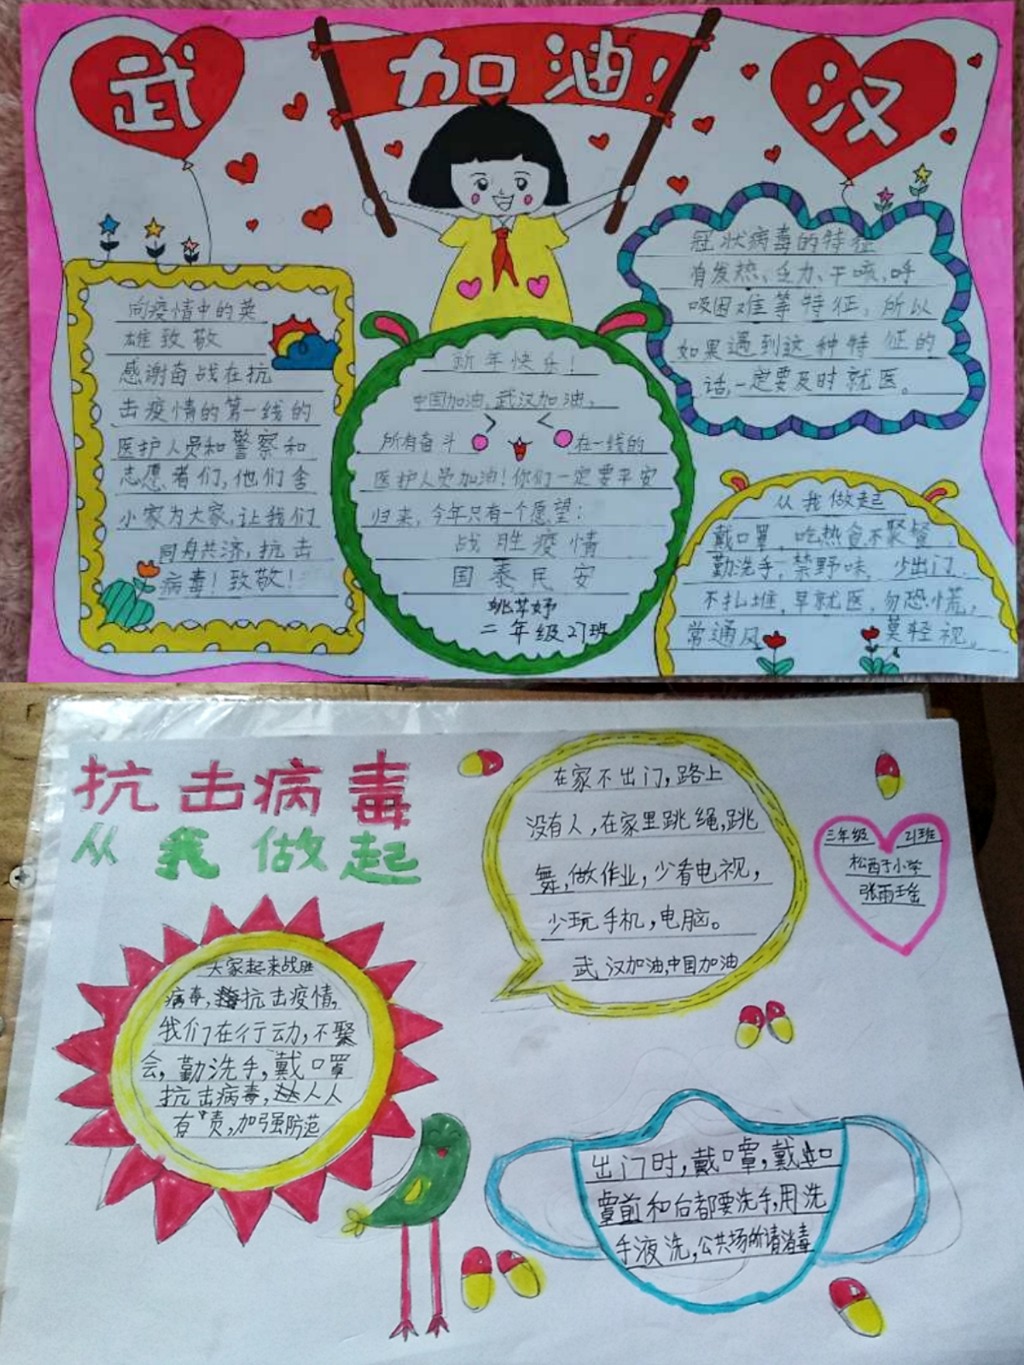 武
加油!
汉
向疫情中的英
雄致敬
感谢奋战在抗
击疫情的第一线的
医护人员和警察和
志愿者们,他们舍
小家为大家,让我们
同舟共济,抗击
病毒!致敬!
新年快乐!
中国加油,武汉加油、
所有奋斗 在一线的
医护人员加油!你们一定要平安
归来,今年只有一个愿望:
战胜疫情
国泰民安
二年级21班
冠状病毒的特征
有发热、乏力、干咳,呼
吸困难等特征,所以
如果遇到这种特征的
话,一定要及时就医。
从我做起
戴口罩,吃热食不聚餐
勤洗手,禁野味,少出门
不扎堆,早就医,勿恐慌,
常通风 莫轻视。
抗击病毒
从我做起
大家起来战胜
病毒,抗击疫情,
我们在行动,不聚
会,勤洗手,戴口罩
抗击病毒,人人
有责,加强防范
在家不出门,路上
没有人,在家里跳绳,跳
舞,做作业,少看电视,
少玩手机,电脑。
武汉加油,中国加油
三年级 21班
松西子小学
张雨瑶
出门时,戴口罩,戴口
罩前和后都要洗手,用洗
手液洗,公共场所请消毒